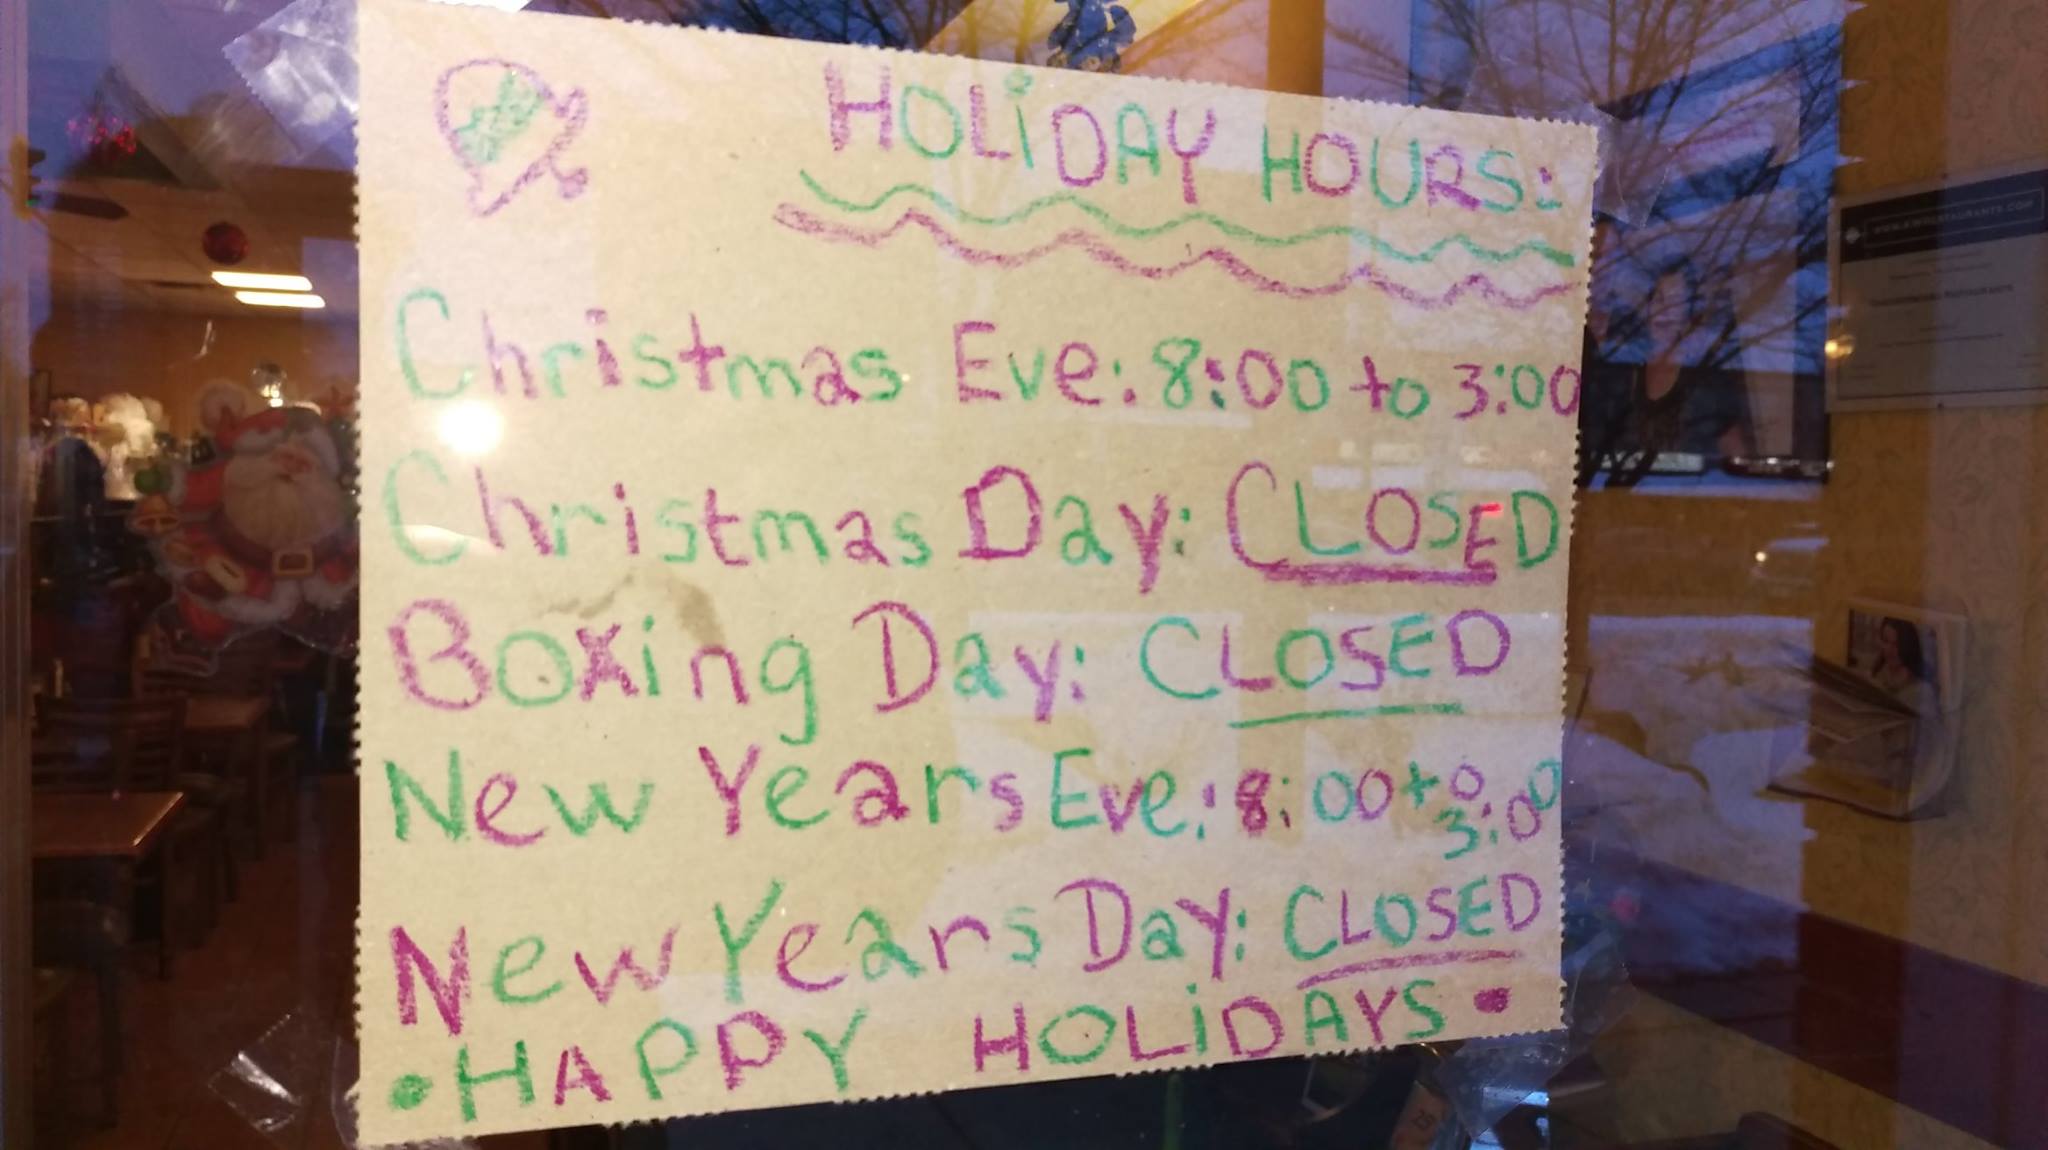 HOLiDAY HOURS:
Christmas Eve: 8:00 to 3:00
Christmas Day: CLOSED
Boxing Day: CLOSED
New Years Eve: 8:00 to 3:00
New Years Day: CLOSED
• HAPPY HOLiDAYS •